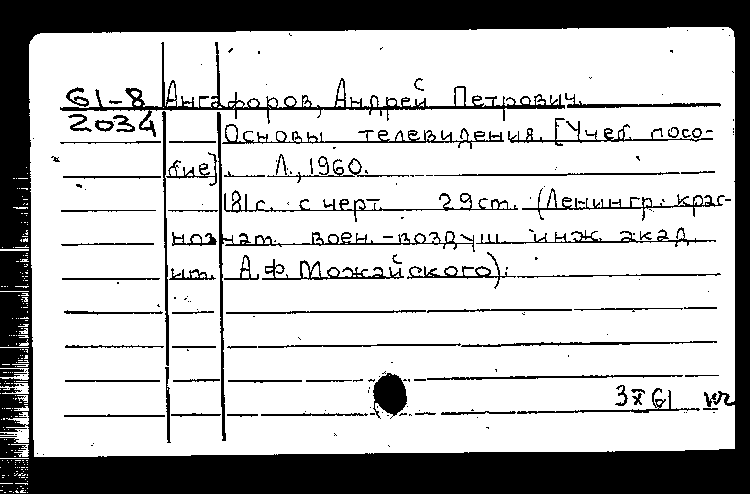 61-8 Ангафоров, Андрей Петрович.
2034 Основы телевидения. [Учеб. посо-
бие]. Л., 1960.
181с. с черт. 29см. (Ленингр. крас-
нознам. воен.-воздуш. инж. акад.
им. А.Ф. Можайского).
3 X 61